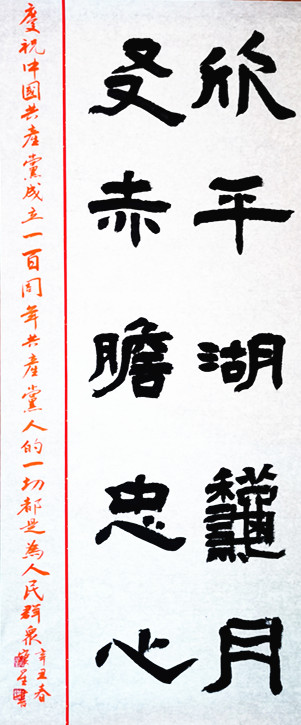 欣平湖龝月
赤膽忠心
慶祝中國共產黨成立一百周年共產黨人的一切都是為人民群衆
辛丑春
書